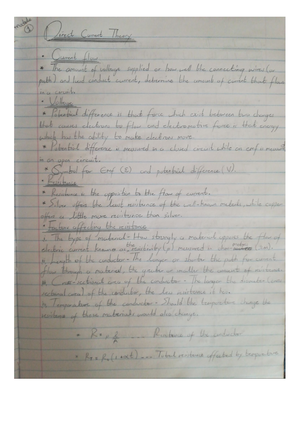 Direct Current Theory
Current flow
• The amount of voltage supplied or how well the connecting wires (or
path) and load conduct currents, determine the amount of current that flows
in a circuit.
• Voltage
• Potential difference is that force which exist between two charges
that causes electrons to flow and electromotive force is that energy
which has the ability to make electrons move.
• Potential difference is measured in a closed circuit while an emf is measured
in an open circuit.
• Symbol for Emf (E) and potential difference (V)
• Resistance
• Resistance is the opposition to the flow of current.
• Silver offers the least resistance of the well-known metals, while copper
offer a little more resistance than silver.
• Factors affecting the resistance
The type of material: How strongly a material opposes the flow of
electric current known as the resistivity is measured in ohm (Ωm)
Length of the conductor: The longer or shorter the path for current
flow through a material, the greater or smaller the amount of resistance.
Cross-sectional area of the conductor: The larger the
sectional area of the conductor, the less resistance it has.
Temperature of the conductor: Should the temperature change the
resistance of these materials would also change.
Resistance of the conductor
Total resistance affected by temperature